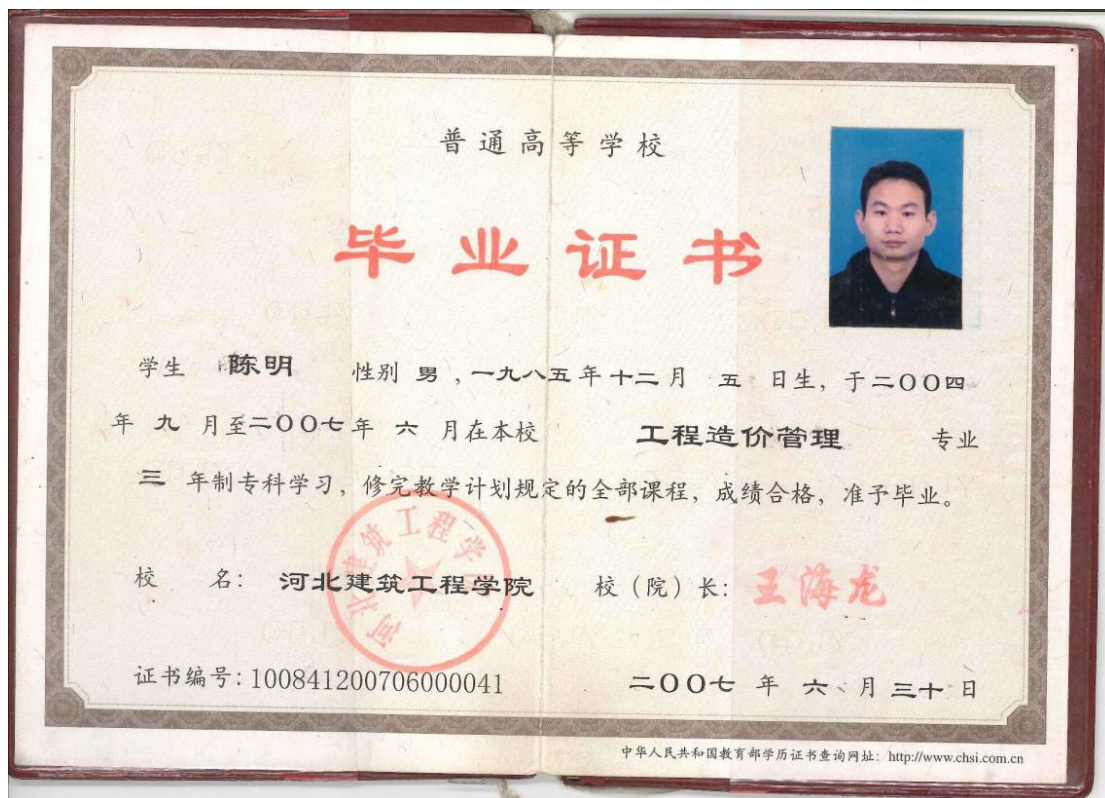 普通高等学校
毕业证书
学生 陈明 性别 男,一九八五年十二月 五 日生,于二〇〇四
年 九 月至二〇〇七年 六 月在本校 工程造价管理 专业
三 年制专科学习,修完教学计划规定的全部课程,成绩合格,准予毕业。
河北建筑工程学院
校 名: 河北建筑工程学院 校(院)长: 王海龙
证书编号:100841200706000041 二〇〇七 年 六 月 三十 日
中华人民共和国教育部学历证书查询网址: http://www.chsi.com.cn